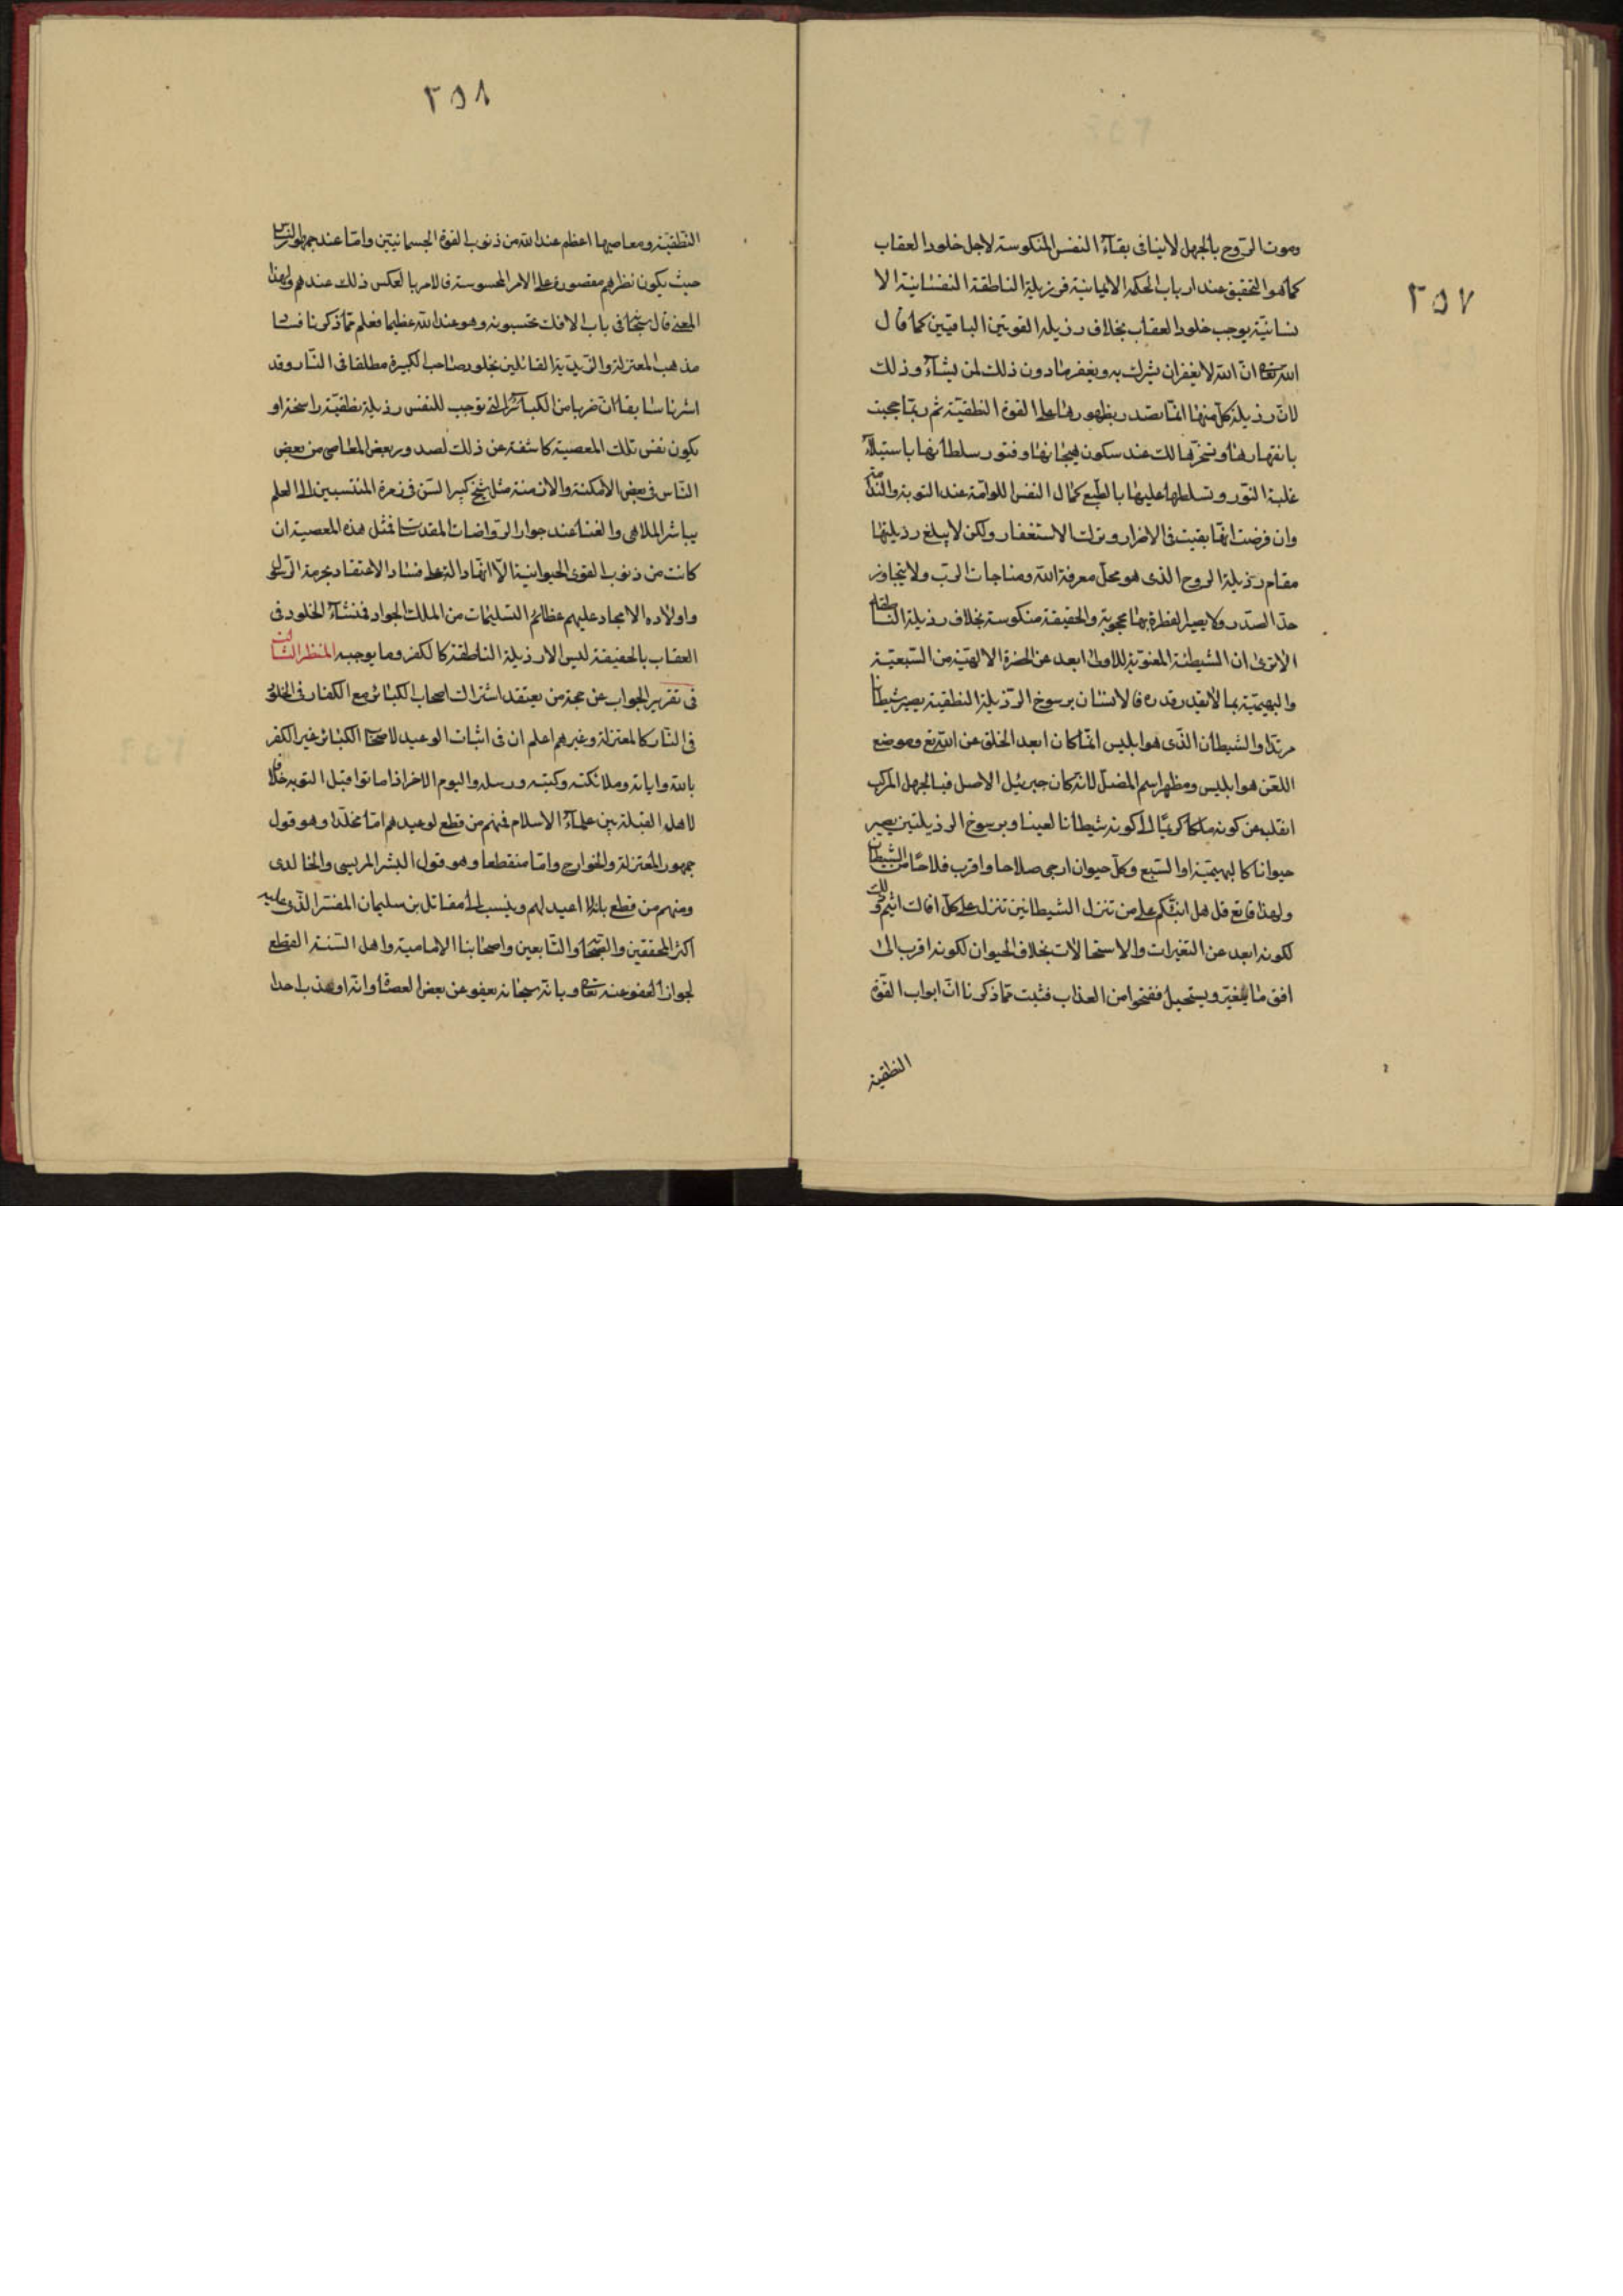 ٢٥٧
وموت الروح بالجهل لاينافى بقاء النفس المنكوسة لاجل خلود العقاب
كما هو التحقيق عند ارباب الحكمة الايمانية فرزيلة الناطقة النفسانية الا
نسانية يوجب خلود العقاب بخلاف رذيلة القوتين الباقيتين كما قال
الله تعالى ان الله لا يغفر ان يشرك به ويغفر ما دون ذلك لمن يشاء وذلك
لان رذيلة كل منهما انما تصدر بظهورها على القوة النطقية ثم ربما محيت
بانقهارها وتسخرها لك عند سكون هيجانها وفتور سلطانها باستيلاء
غلبة النور وتسلطها عليها بالطبع كمال النفس اللوامة عند التوبة والندامة
وان فرضت انها بقيت فى الاضرار وترك الاستغفار ولكن لا يبلغ رذيلتها
مقام رذيلة الروح الذى هو محل معرفة الله ومناجات الرب ولا يتجاوز
حد الصدر ولا يصير الفطرة بها محجوبة والحقيقة منكوسة بخلاف رذيلة الناطقة
الا ترى ان الشيطنة المغوية للاومى ابعد عن الحضرة الالهية من السبعية
والبهيمية بما لا يقدر قدره فالانسان برسوخ الرذيلة النطقية يصير شيطانا
مرتدا والشيطان الذى هو ابليس انما كان ابعد الخلق عن الله تع وموضع
اللعن هو ابليس ومظهر اسم المضل لانه كان جبرئيل الاصل فبالجهل المركب
انقلب من كونه ملكا كريما الى كونه شيطانا لعينا وبرسوخ الرذيلتين يصير
حيوانا كالبهيمة او السبع وكل حيوان ارجى صلاحا واقرب فلاحا من الشيطان
ولهذا قا تع قل هل انبئكم على من تنزل الشياطين تنزل على كل افاك اثيم وذلك
لكونه ابعد عن التغيرات والاستحالات بخلاف الحيوان لكونه اقرب الى
افق ما يتغير ويستحيل ففتحوا من العذاب فثبت مما ذكرنا ان ابواب القوة
النطقية
٢٥٨
النطقية ومعاصيها اعظم عند الله من ذنوب القوة الجسمانيتين واما عند جمهور الناس
حيث يكون نظرهم مقصورة على الامر المحسوسة فالامر بالعكس ذلك عندهم ولهذا
المعنى قال سبحانه فى باب الافك تحسبونه وهو عند الله عظيما فعلم مما ذكرنا فساد
مذهب المعتزلة والزيدية القائلين بخلود صاحب الكبيرة مطلقا فى النار وقد
اشرنا سابقا ان ضربا من الكبائر التى توجب للنفس رذيلة نطقية راسخة او
يكون نفس تلك المعصية كاشفة عن ذلك لصدور بعض المعاصى من بعض
الناس فى بعض الامكنة والازمنة مثل شيخ كبير السن فى زمرة المنتسبين الى العلم
يباشر الملاهى والغناء عند جوار الروضات المقدسة فمثل هذه المعصية ان
كانت من ذنوب القوى الحيوانية الا انها دالة على فساد الاعتقاد بحرمة الرسول
واولاده الامجاد عليهم عظائم التسليمات من الملك الجواد فمنشاء الخلود فى
العقاب بالحقيقة ليس الا رذيلة الناطقة كالكفر وما يوجبه المنظر الثالث
فى تقرير الجواب عن حجة من يعتقد اشتراك اصحاب الكبائر مع الكفار فى الخلود
فى النار كالمعتزلة وغيرهم اعلم ان فى اثبات الوعيد لاصحاب الكبائر غير الكفر
بالله واياته وملائكته وكتبه ورسله واليوم الاخر اذا ماتوا قبل التوبه خلافا
لاهل القبلة بين علماء الاسلام فمنهم من قطع لوعيدهم اما مخلدا وهو قول
جمهور المعتزلة والخوارج واما منقطعا وهو قول البشر المريسى والخالدى
ومنهم من قطع بانه لا وعيد لهم وينسب الى مقاتل بن سليمان المفسر الذى عليه
اكثر المحققين والصحابة والتابعين واصحابنا الامامية واهل السنة القطع
لجواز العفو عنه تعالى وبانه سبحانه يعفو عن بعض العصاة وانه اذا عذب احدا